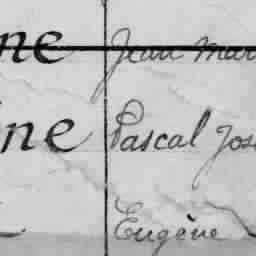 ne Jean Mar
ne Pascal Jos
Eugène